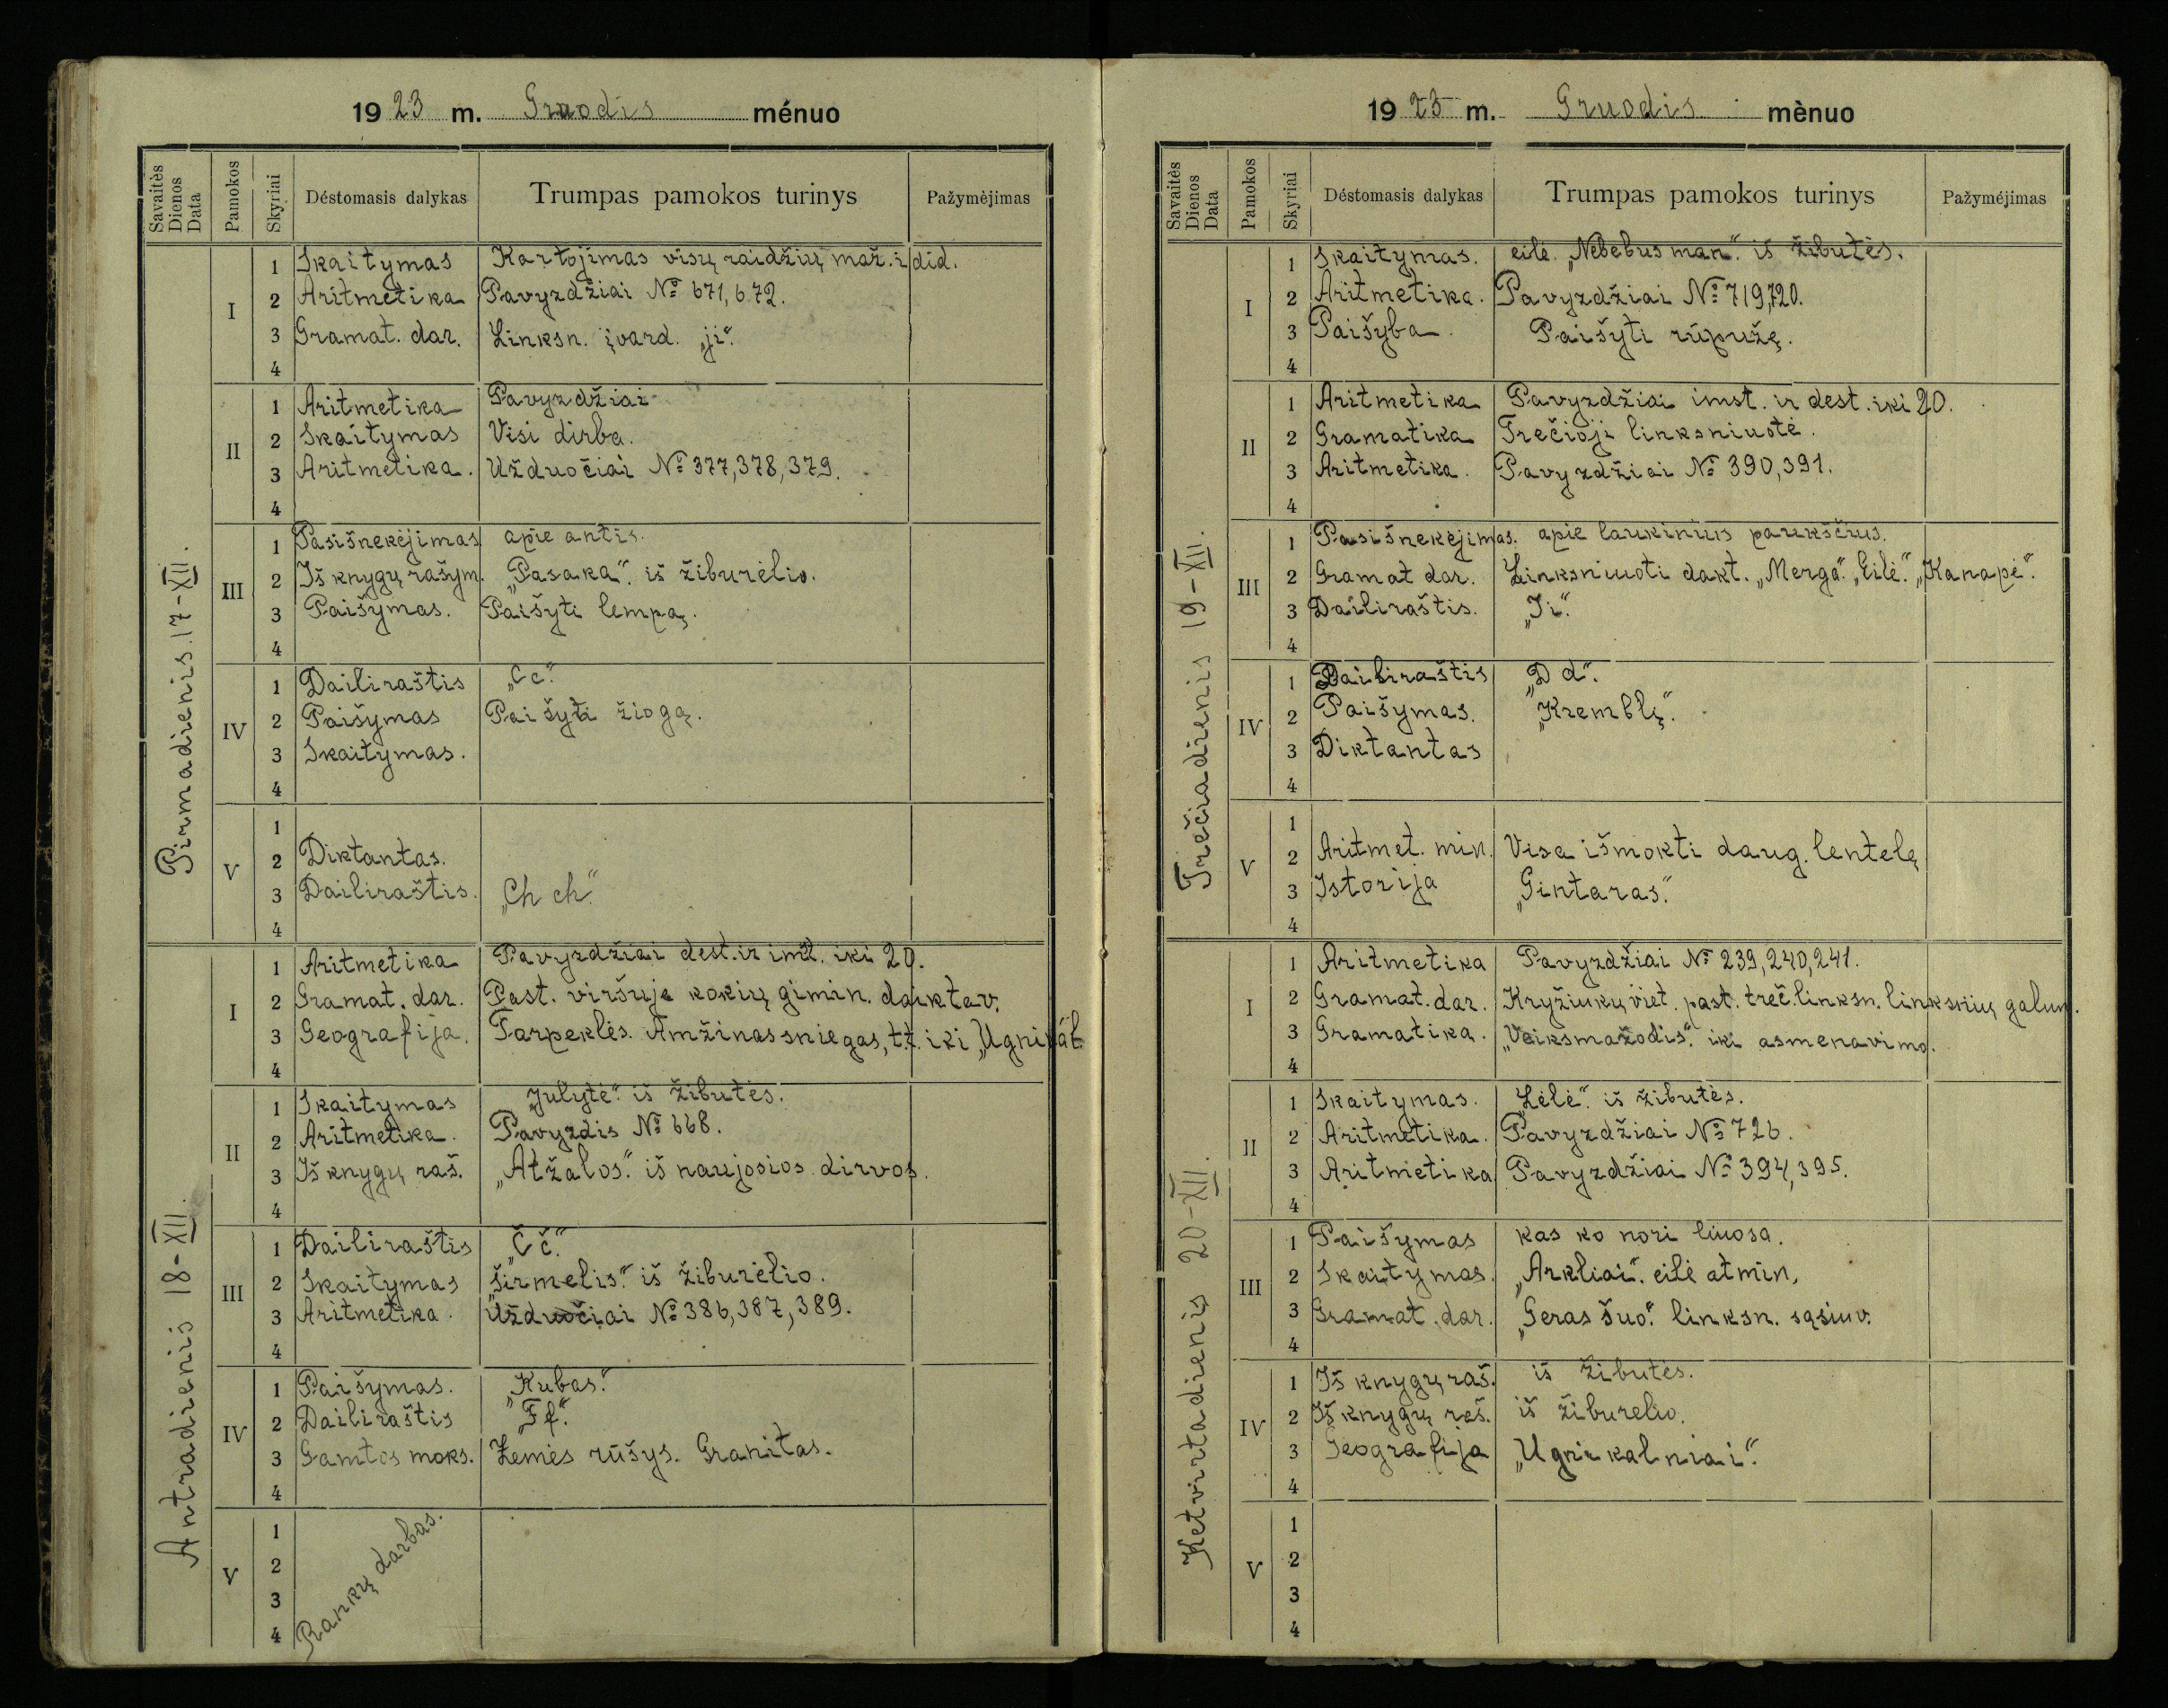 1923 m. Gruodis ménuo
Savaitės Dienos Data Pamokos Skyriai Déstomasis dalykas Trumpas pamokos turinys Pažymėjimas
Pirmadienis 17-XII.
I
1 Skaitymas Kartojimas visų raidžių maž. i did.
2 Aritmetika Pavyzdžiai № 671, 672.
3 Gramat. dar. Linksn. įvard. „ji“.
4
II
1 Aritmetika Pavyzdžiai
2 Skaitymas Visi dirba.
3 Aritmetika. Užduočiai № 377, 378, 379.
4
III
1 Pasišnekėjimas apie antis.
2 Iš knygų rašym. „Pasaka“. iš žiburėlio.
3 Paišymas. Paišyti lempą.
4
IV
1 Dailiraštis „Cc“.
2 Paišymas Paišyti žiogą.
3 Skaitymas.
4
V
1
2 Diktantas.
3 Dailiraštis. „Ch ch“.
4
Antradienis 18-XII.
I
1 Aritmetika Pavyzdžiai dest. ir imt. iki 20.
2 Gramat. dar. Past. viršuje kokių gimin. daiktav.
3 Geografija. Tarpeklės. Amžinas sniegas, t.t. iki „Ugnikal.
4
II
1 Skaitymas „Julytė“ iš žibutės.
2 Aritmetika. Pavyzdis № 668.
3 Iš knygų raš. „Atžalos“. iš naujosios dirvos.
4
III
1 Dailiraštis „Č č“.
2 Skaitymas „Širmelis“. iš žiburėlio.
3 Aritmetika. Užduočiai № 386, 387, 389.
4
IV
1 Paišymas. „Kubas“.
2 Dailiraštis „Ff“.
3 Gamtos moks. Žemės rūšys. Granitas.
4
V
1
2
3
4
Rankų darbas.
1923 m. Gruodis mènuo
Savaitės Dienos Data Pamokos Skyriai Déstomasis dalykas Trumpas pamokos turinys Pažyméjimas
Trečiadienis 19-XII.
I
1 Skaitymas. eilė. „Nebebus man“. iš žibutės.
2 Aritmetika. Pavyzdžiai № 719, 720.
3 Paišyba. Paišyti rūpužę.
4
II
1 Aritmetika Pavyzdžiai imst. ir dest. iki 20.
2 Gramatika Trečioji linksniuotė.
3 Aritmetika. Pavyzdžiai № 390, 391.
4
III
1 Pasišnekėjimas. apie laukinius paukščius.
2 Gramat dar. Linksniuoti dakt. „Merga“. „Eilė“. „Kanapė“.
3 Dailiraštis. „Ji“.
4
IV
1 Dailiraštis „D d“.
2 Paišymas. „Kremblę“.
3 Diktantas
4
V
1
2 Aritmet. min. Visa išmokti daug. lentelę
3 Istorija „Gintaras“.
4
Ketvirtadienis 20-XII.
I
1 Aritmetika Pavyzdžiai № 239, 240, 241.
2 Gramat. dar. Kryžiukų viet. past. treč. linksn. linksnių galun.
3 Gramatika. „Veiksmažodis“. iki asmenavimo.
4
II
1 Skaitymas. „Lėlė“. iš žibutės.
2 Aritmetika. Pavyzdžiai № 726.
3 Aritmetika Pavyzdžiai № 394, 395.
4
III
1 Paišymas kas ko nori liuosa.
2 Skaitymas. „Arkliai“. eilė atmin,
3 Gramat. dar. „Geras šuo“. linksn. sąsiuv.
4
IV
1 Iš knygų raš. iš žibutės.
2 Iš knygų raš. iš žiburelio.
3 Geografija „Ugnikalniai“.
4
V
1
2
3
4